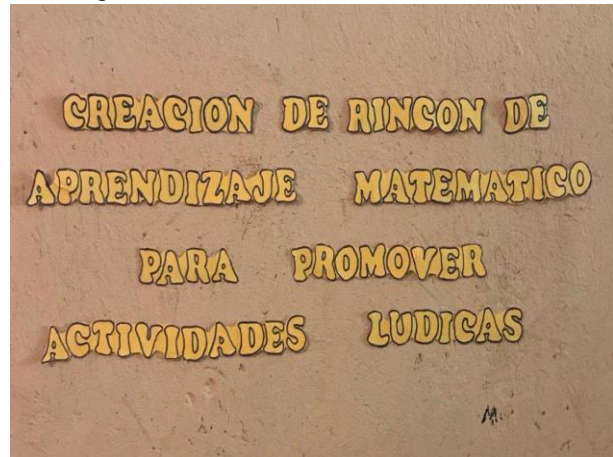 CREACION DE RINCON DE
APRENDIZAJE MATEMATICO
PARA PROMOVER
ACTIVIDADES LUDICAS